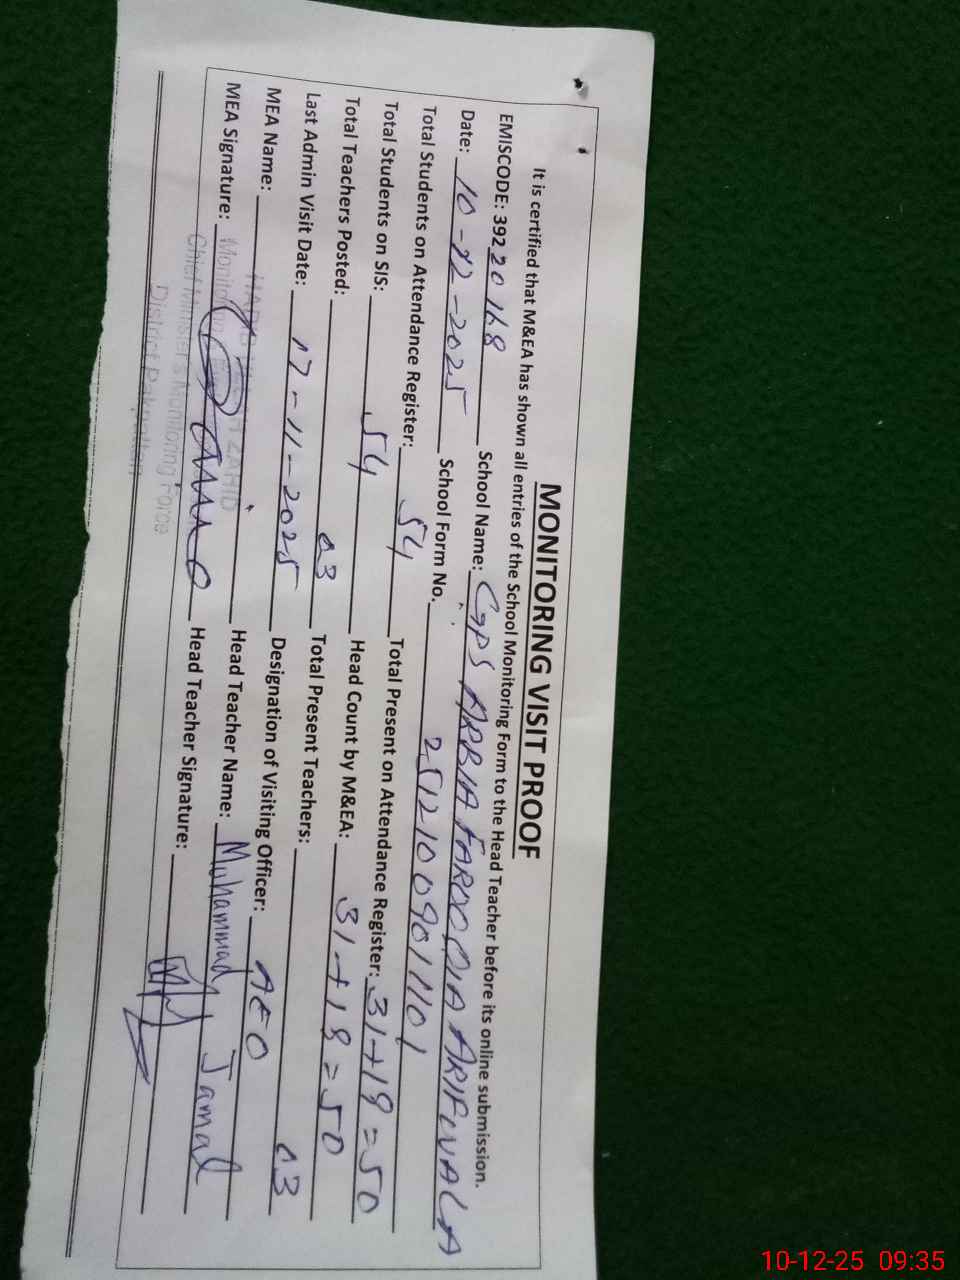 MONITORING VISIT PROOF
It is certified that M&EA has shown all entries of the School Monitoring Form to the Head Teacher before its online submission.
EMISCODE: 39220168 School Name: GPS ARBIA FAROOQIA ARIFWALA
Date: 10-12-2025 School Form No. 2512100901101
Total Students on Attendance Register: 54 Total Present on Attendance Register: 31+19=50
Total Students on SIS: 54 Head Count by M&EA: 31+19=50
Total Teachers Posted: 03 Total Present Teachers: 03
Last Admin Visit Date: 17-11-2025 Designation of Visiting Officer: AEO
MEA Name: ZAHID Head Teacher Name: Muhammad Jamal
MEA Signature: Head Teacher Signature:
Chief Minister's Monitoring Force
District Pakpattan
10-12-25 09:35